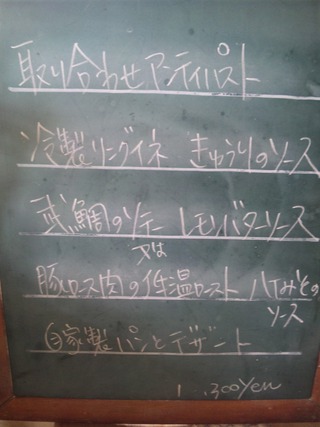 取り合わせアンティパスト
冷製リングイネ きゅうりのソース
鯛のソテー レモンバターソース
又は
豚ロース肉の低温ロースト ハチみその
ソース
自家製パンとデザート
1,300Yen